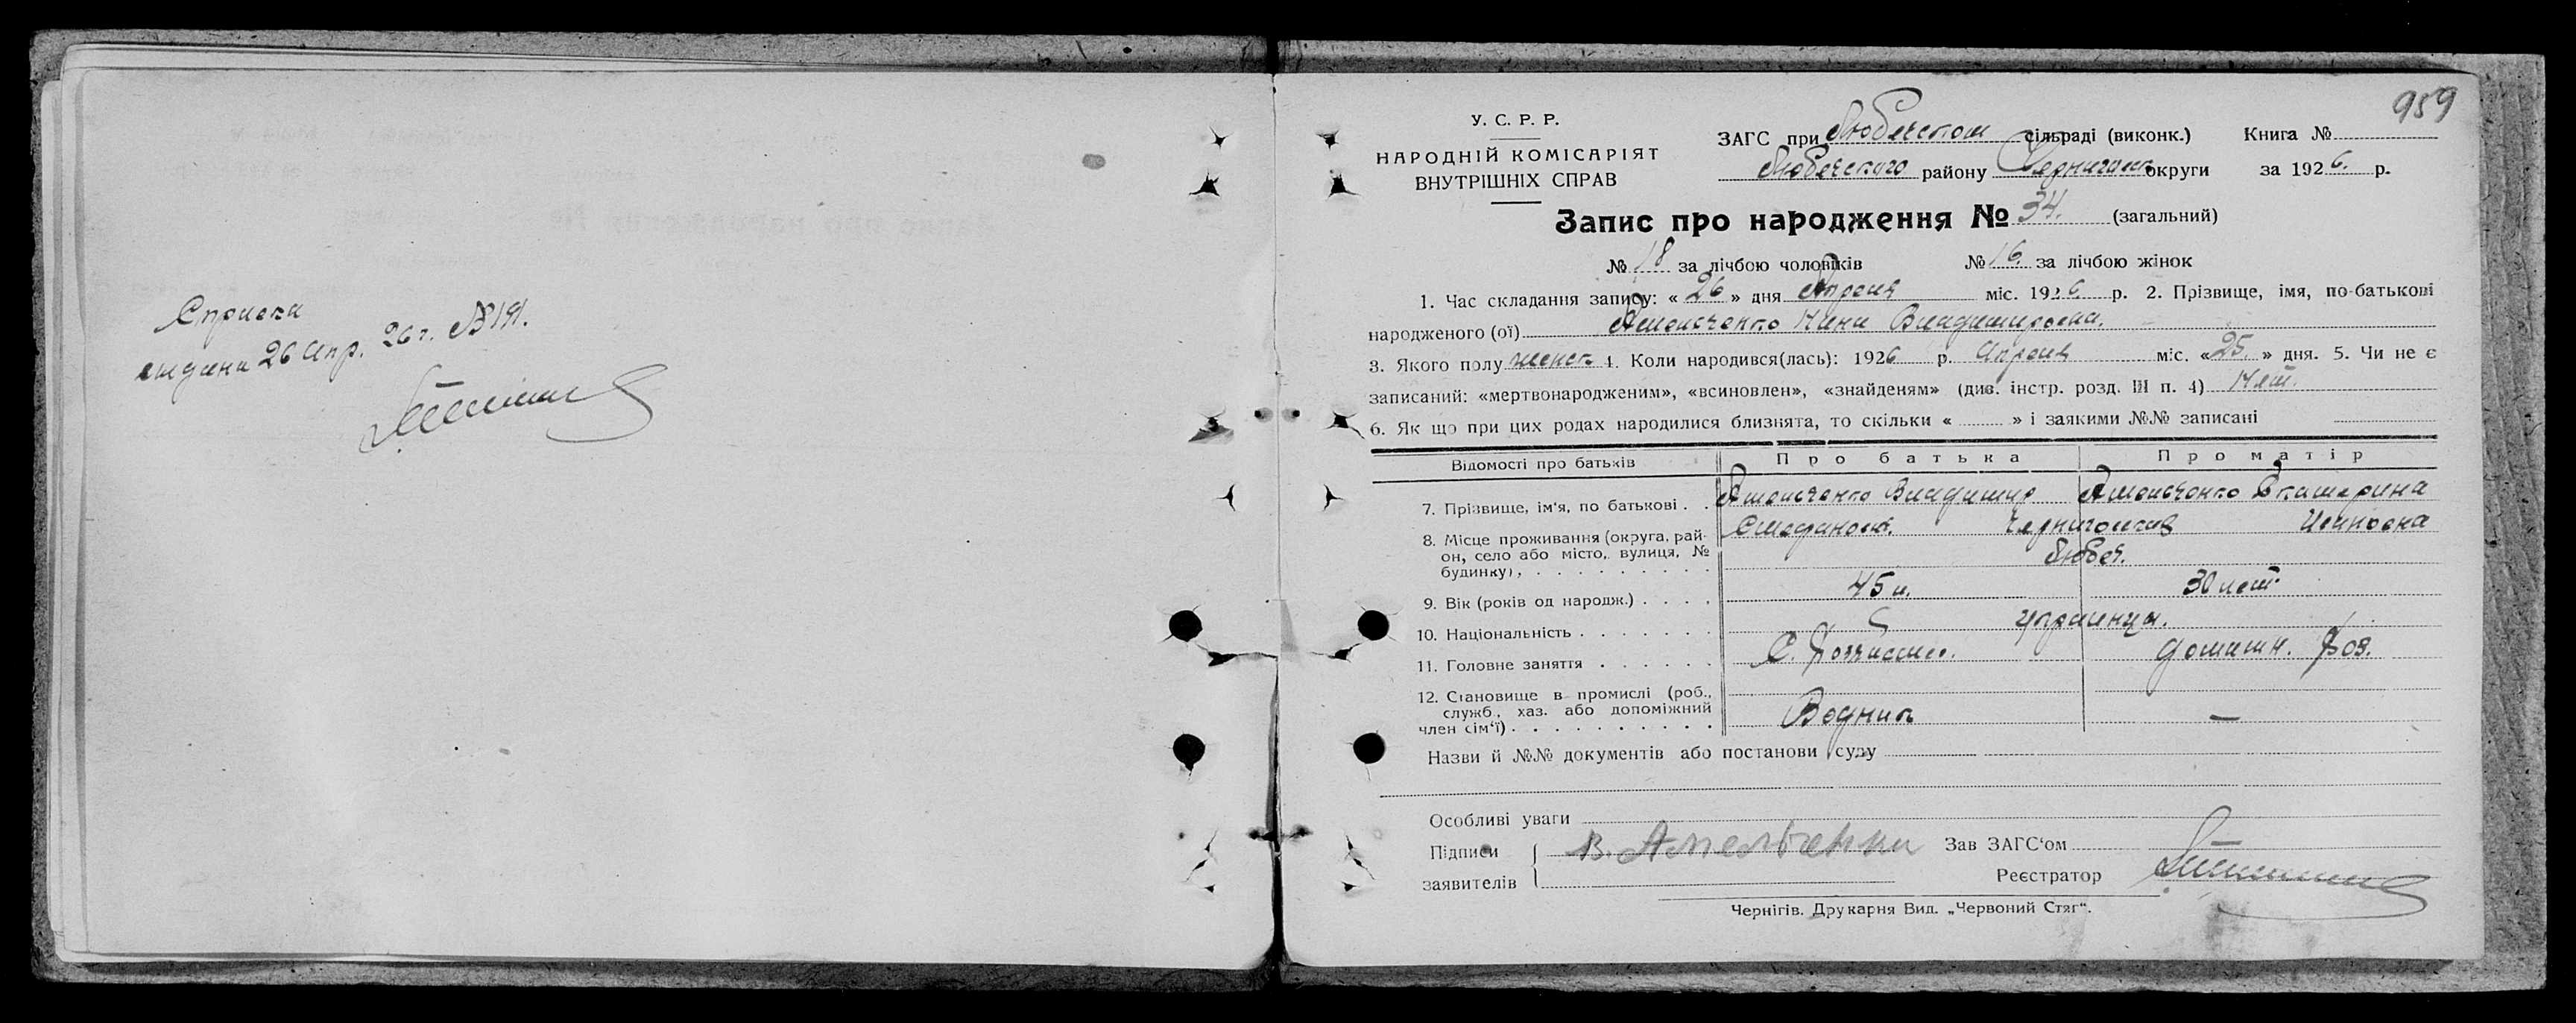 Справка
выдана 26 Апр. 26 г. № 191.
959
У. С. Р. Р.
НАРОДНІЙ КОМІСАРІЯТ
ВНУТРІШНІХ СПРАВ
ЗАГС при Любечском сільраді (виконк.) Книга №
Любечского району Чернигов. округи за 1926. р.
Запис про народження № 34. (загальний)
№ 18 за лічбою чоловіків № 16. за лічбою жінок
1. Час складання запису: « 26 » дня Апреля міс. 1926. р. 2. Прізвище, імя, по-батькові
народженого (ої) Амельченко Нина Владимировна.
3. Якого полу женск. 4. Коли народився(лась): 1926 р. Апреля міс. «25.» дня. 5. Чи не є
записаний: «мертвонародженим», «всиновлен», «знайденям» (див. інстр. розд. III п. 4) Нет.
6. Як що при цих родах народилися близнята, то скільки « » і заякими №№ записані
Відомості про батьків Про батька Про матір
7. Прізвище, ім'я, по батькові . . Амельченко Владимир Амельченко Екатерина
8. Місце проживання (округа, рай- Черниговская
он, село або місто, вулиця, № Любеч.
будинку), . . . . . . . . . .
9. Вік (років од народж.) . . . . 45 л. 30 лет.
10. Національність . . . . . . . Украинцы.
11. Головне заняття . . . . . . домашн. хоз.
12. Становище в промислі (роб.,
служб., хаз. або допоміжний
член сім'ї) . . . . . . . . . . Водник —
Назви й №№ документів або постанови суду
Особливі уваги
Підписи В. Амельченко Зав ЗАГС'ом
заявителів Реєстратор
Чернігів. Друкарня Вид. „Червоний Стяг“.